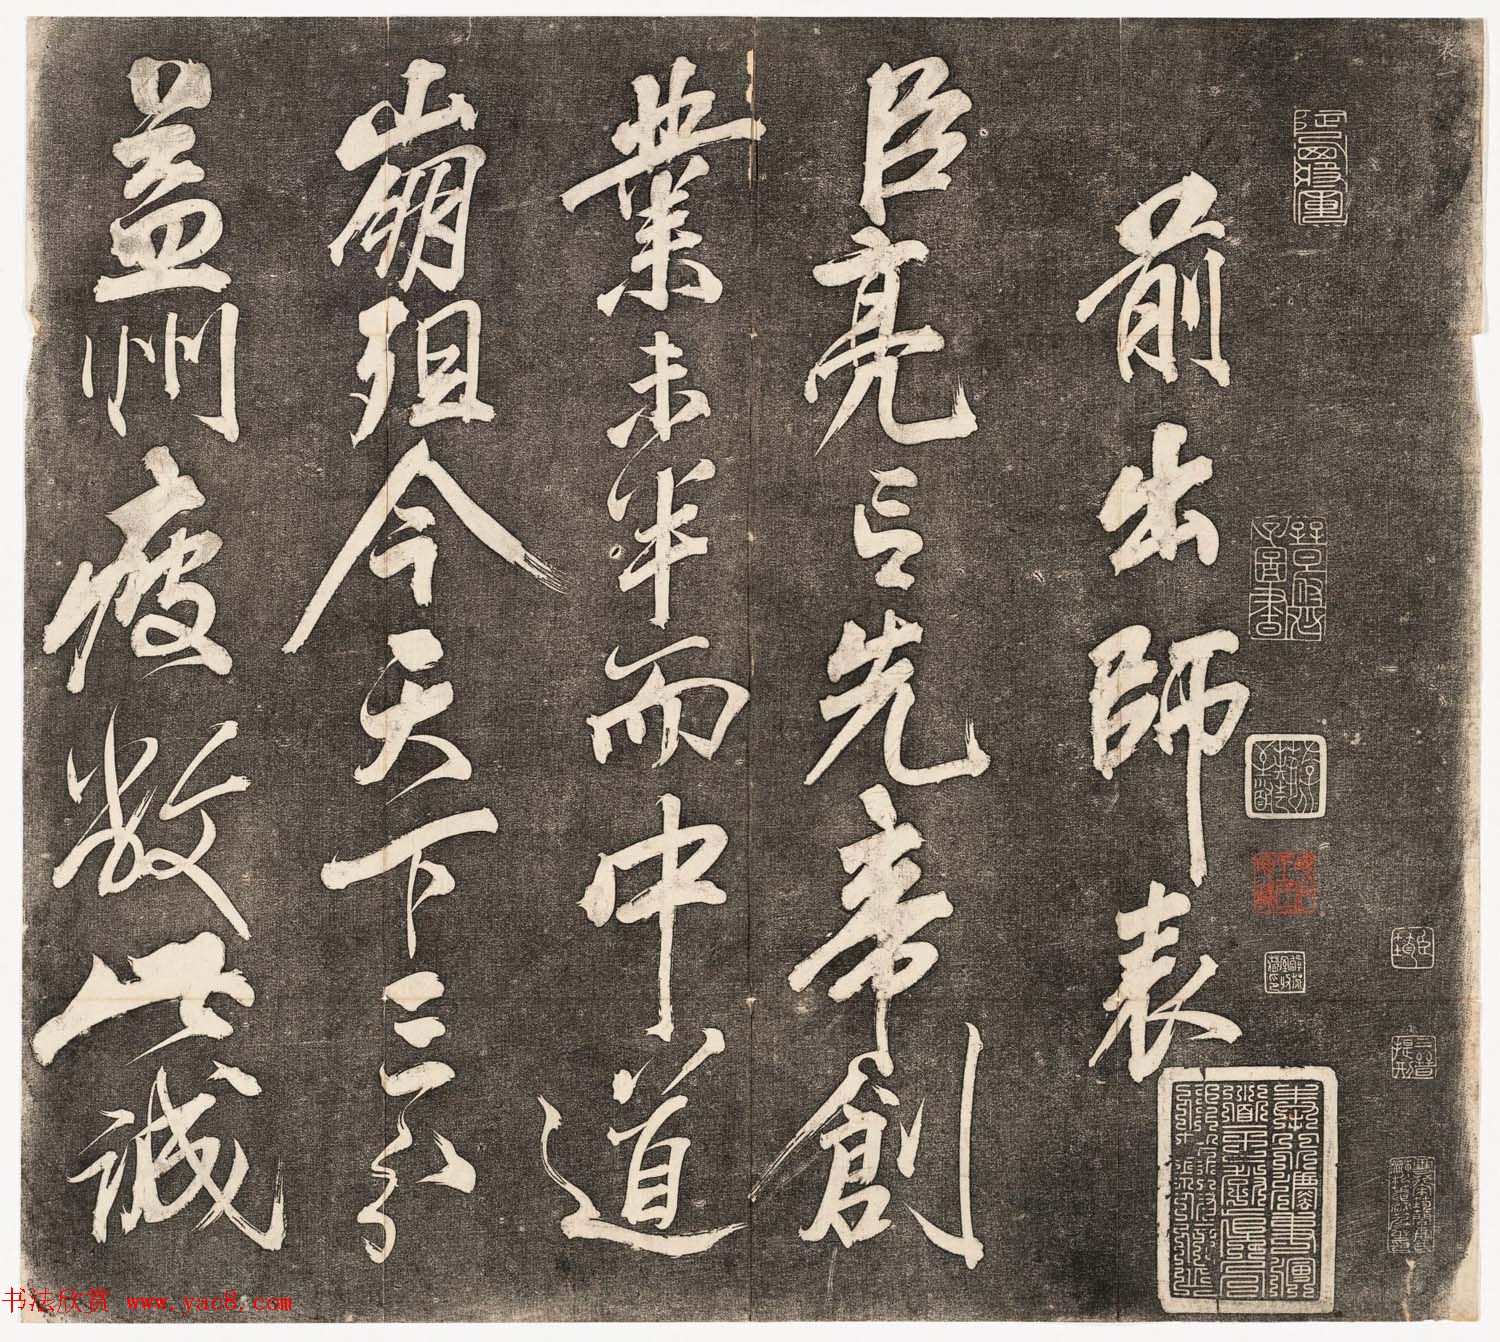 前出師表
臣亮言先帝創
業未半而中道
崩殂今天下三分
益州疲敝此誠
三晉提刑
书法欣赏 www.yac8.com